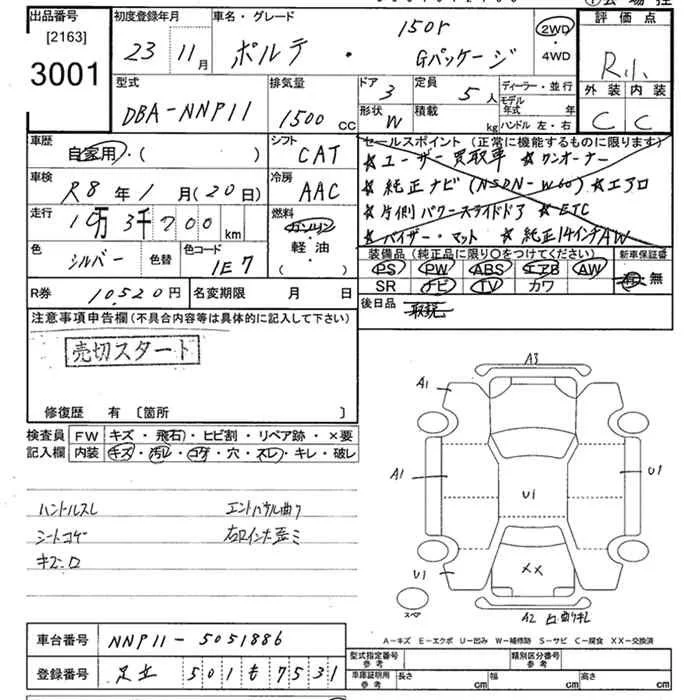 出品番号 初度登録年月 車名・グレード 評価点
[2163] 150r 2WD
3001 23 11月 ポルテ ・ Gパッケージ ・4WD R小
型式 排気量 ドア 3 定員 5人 ディーラー・並行 外装 内装
DBA-NNP11 1500cc 形状 W 積載 kg モデル年式 年 C C
ハンドル 左・右
車歴 シフト セールスポイント(正常に機能するものに限ります)
自家用・( ) CAT ★ユーザー買取車 ★ワンオーナー
車検 冷房 ★純正ナビ(NSDN-W60) ★エアロ
R8年1月(20日) AAC ★片側パワースライドドア ★ETC
走行 10万3千700km 燃料 ★バイザー・マット ★純正14インチAW
ガソリン 装備品(純正品に限り○をつけてください) 新車保証書
色 シルバー 色替 色コード 1E7 軽・油 ・( ) PS PW ABS エアB AW 有・無
SR ナビ TV カワ
R券 10,520円 名変期限 月 日 後日品 取説
注意事項申告欄(不具合内容等は具体的に記入して下さい)
売切スタート
A3
A1
修復歴 有 〔箇所 〕
検査員 FW キズ・飛石・ヒビ割・リペア跡・×要
記入欄 内装 キズ・汚レ・コゲ・穴・スレ・キレ・破レ
A1 U1 U1
ハンドルスレ
シートコゲ
キズ・ロ
U1 XX
スペア
A2
A-キズ E-エクボ U-凹み W-補修跡 S-サビ C-腐食 XX-交換済
車台番号 NNP11-5051886
型式指定番号 参考 類別区分番号 参考
登録番号 足立 501 も 7531
車庫証明用 参考 長さ cm 幅 cm 高さ cm